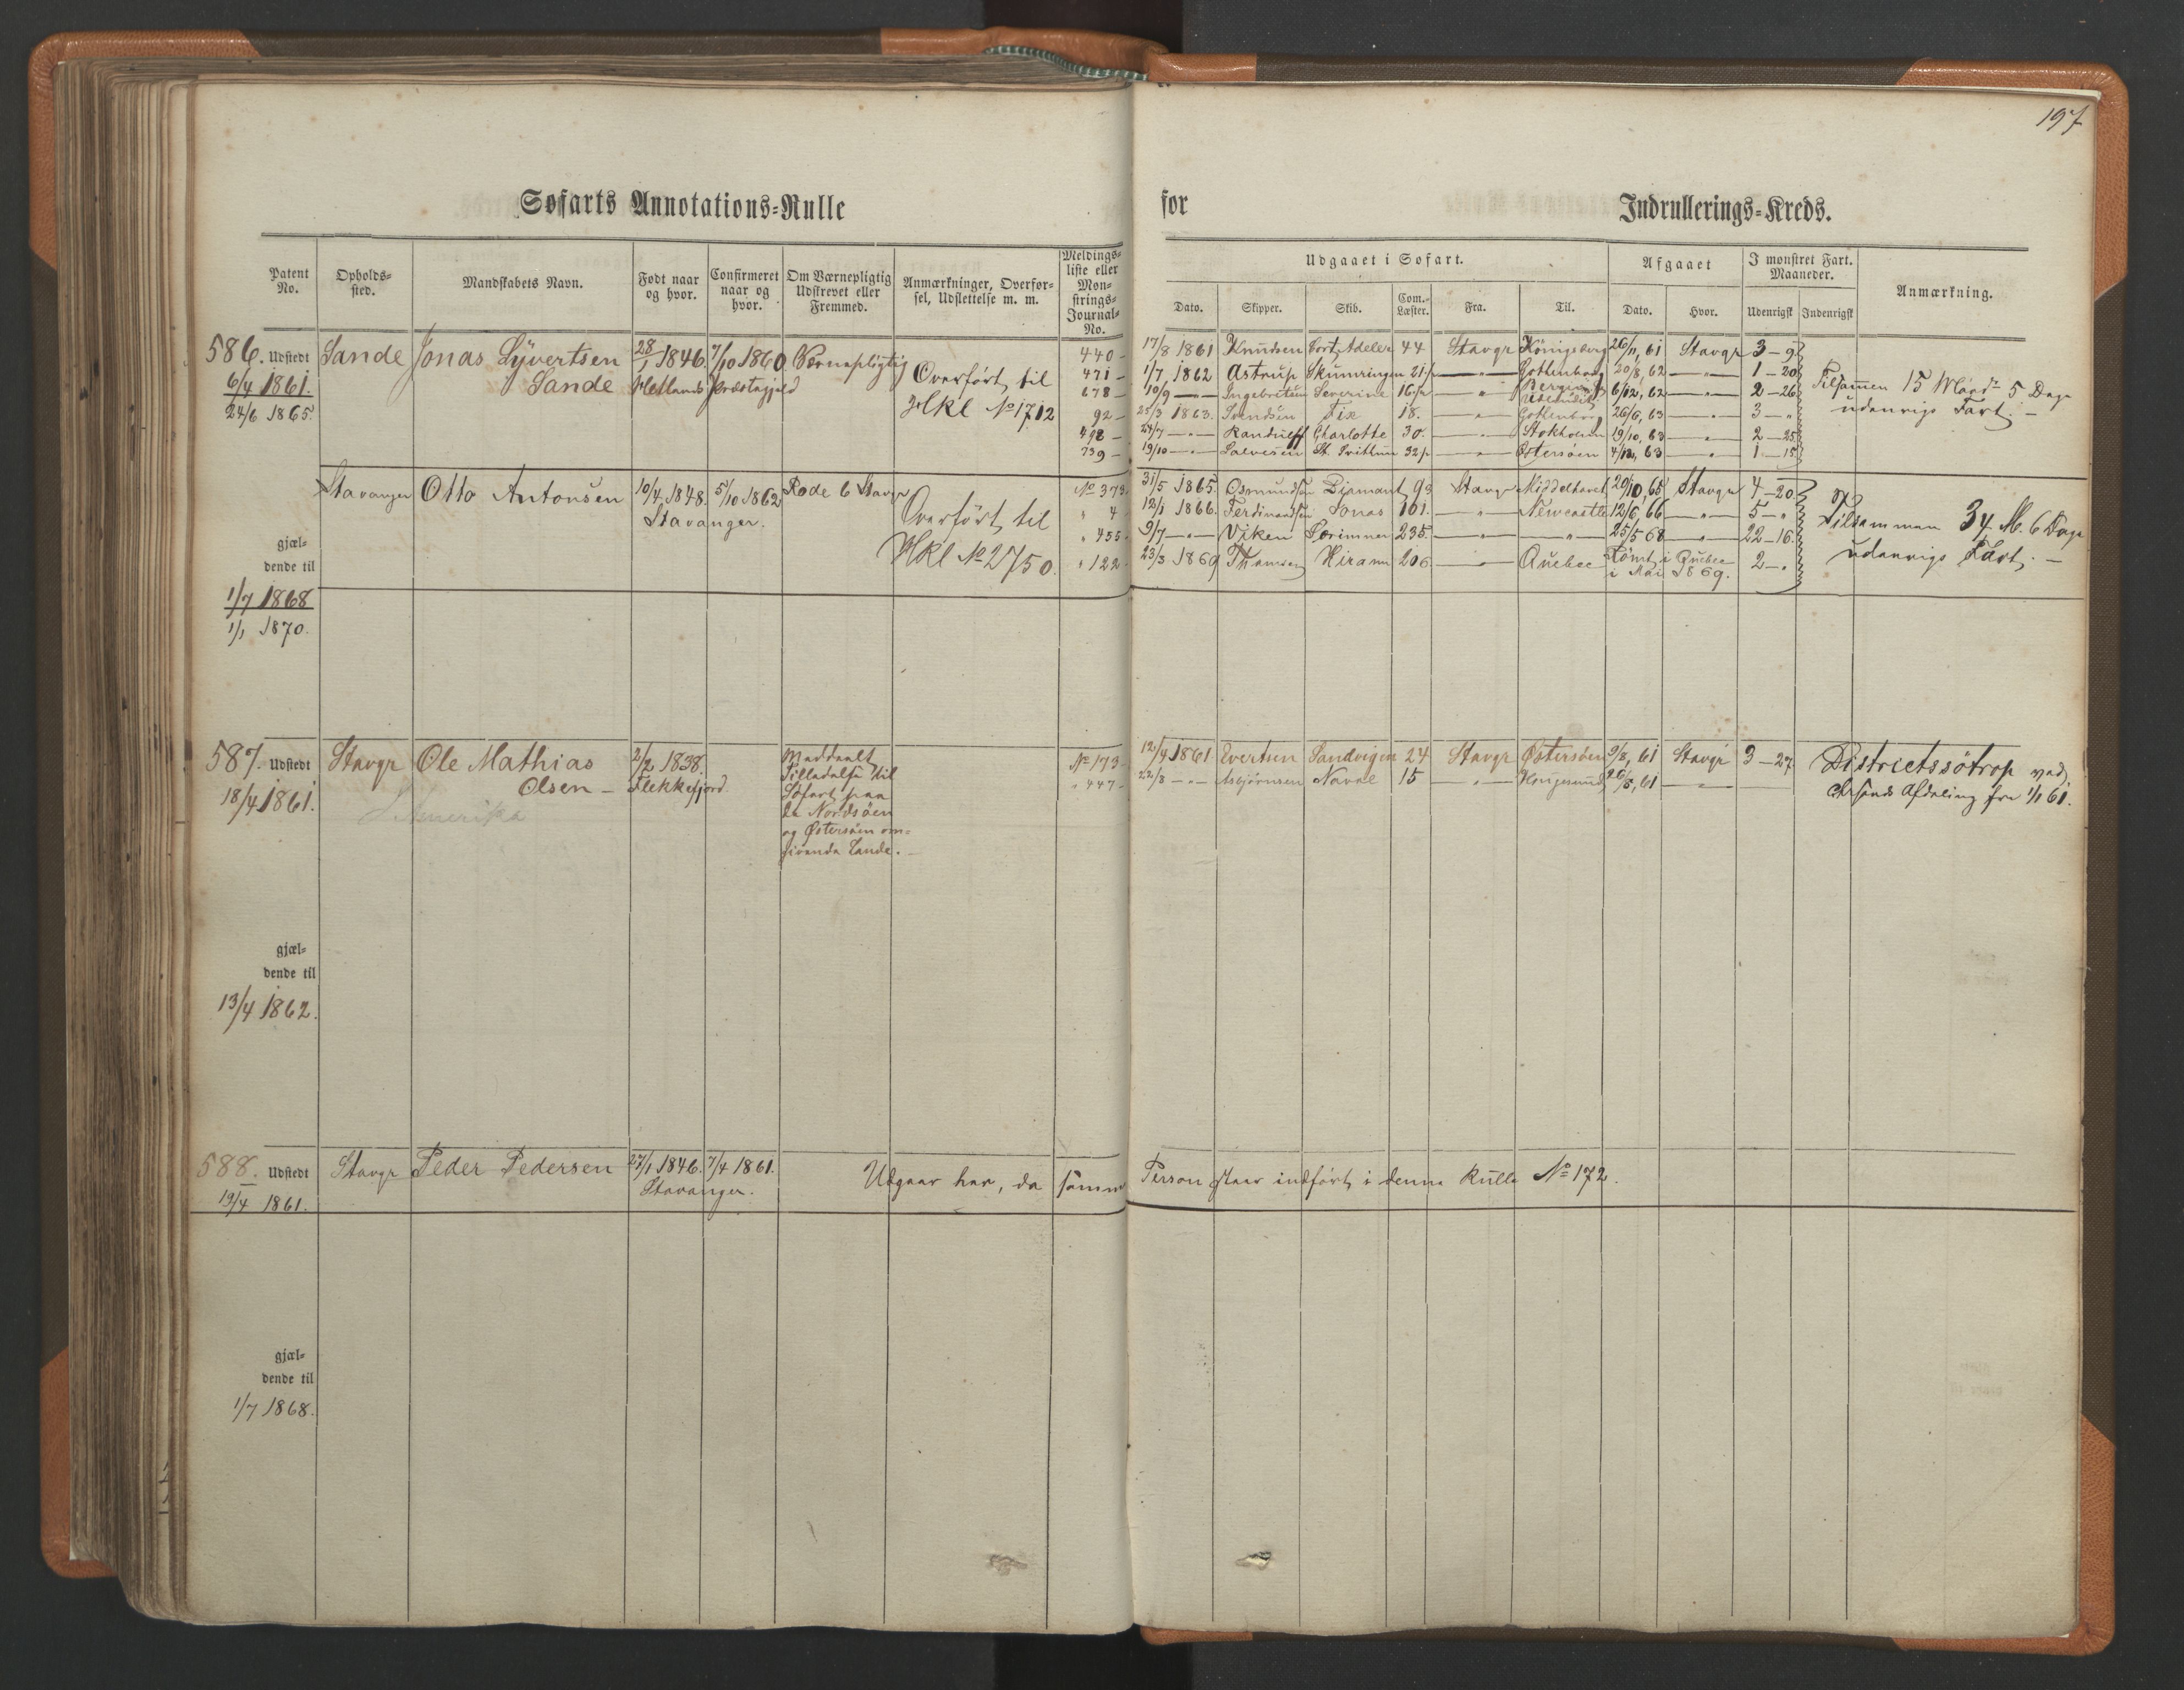 197
Søfarts Annotations-Rulle for Indrullerings-Kreds.
Patent No.
Opholds-sted.
Mandskabets Navn.
Født naar og hvor.
Confirmeret naar og hvor.
Om Værnepligtig Udskrevet eller Fremmed.
Anmærkninger, Overførsel, Udslettelse m. m.
Meldingsliste eller Mønstrings-Journal-No.
Udgaaet i Søfart.
Dato. Skipper. Skib. Com.-Læster. Fra. Til.
Afgaaet
Dato. Hvor.
I mønstret Fart. Maaneder.
Udenrigsk Indenrigsk
Anmærkning.
586. Udstedt Sande Jonas Syvertsen 28/1 1846. 7/10 1860. Værnepligtig
6/4 1861. Sande Hetlands Præstegjeld
24/6 1865.
Overført til
Hkl No 1712
440 - 17/8 1861 Knudsen Cort Adeler 44 Stavgr Königsberg 26/11, 61 Stavgr 3 - 9
471 - 1/7 1862 Astrup Skumringen 21 - " - Gothenborg 20/8, 62 - " - 1 - 20
678 - 10/9 - " - Ingebretsen Severine 16 - " - Bergen 6/12, 62 - " - 2 - 26
92 - 25/3 1863. Svendsen Fix 18. - " - Gothenborg 26/6, 63 - " - 3 - "
498 - 24/7 - " - Randulff Charlotte 30. - " - Stokholm 19/10, 63 - " - 2 - 25
739 - 19/10 - " - Salvesen St. Svithun 32 - " - Østersøen 4/12, 63 - " - 1 - 15
Tilsammen 15 Maand 5 Dage
udenrigs Fart. -
Stavanger Otto Antonsen 10/4 1848. 5/10 1862 Rode 6 Stavgr
Stavanger.
Overført til
Hkl No 2750.
No 373 31/5 1865. Osmundsen Diamant 93 Stavgr Middelhavet 20/10, 65 Stavgr 4 - 20.
" 4 12/1 1866. Ferdinandsen Jonas 101. - " - Newcastle 12/6, 66 - " - 5 - "
" 455 9/7 - " - Viken 235. - " - " - 25/5 68 - " - 22 - 16.
" 122 23/3 1869 Thomsen Hiram 206 - " - Quebec Rømt i Quebec
i Mai 1869. 2 - "
Tilsammen 34 M. 6 Dage
udenrigs Fart. -
gjæl-
dende til
1/7 1868
1/1 1870.
587. Udstedt Stavgr Ole Mathias 2/2 1838.
18/4 1861. Olsen - Flekkefjord.
Amerika
Meddeelt
Tilladelse til
Søfart paa
de Nordsøen
og Østersøen om-
givende Lande. -
No 173 - 12/4 1861 Evertsen Sandvigen 24 Stavgr Østersøen 9/8, 61 Stavgr 3 - 27
" 447 - 22/8 - " - Asbjørnsen Novae 15 - " - Haugesund 26/8, 61 - " -
Districtssøtrop ved
Chrsands Afdeling fra 1/1 61.
gjæl-
dende til
13/4 1862.
588. Udstedt Stavgr Peder Pedersen 27/1 1846. 7/4 1861.
19/4 1861. Stavanger.
Udgaar her, da samme Person staar indført i denne Rulle No 172.
gjæl-
dende til
1/7 1868.